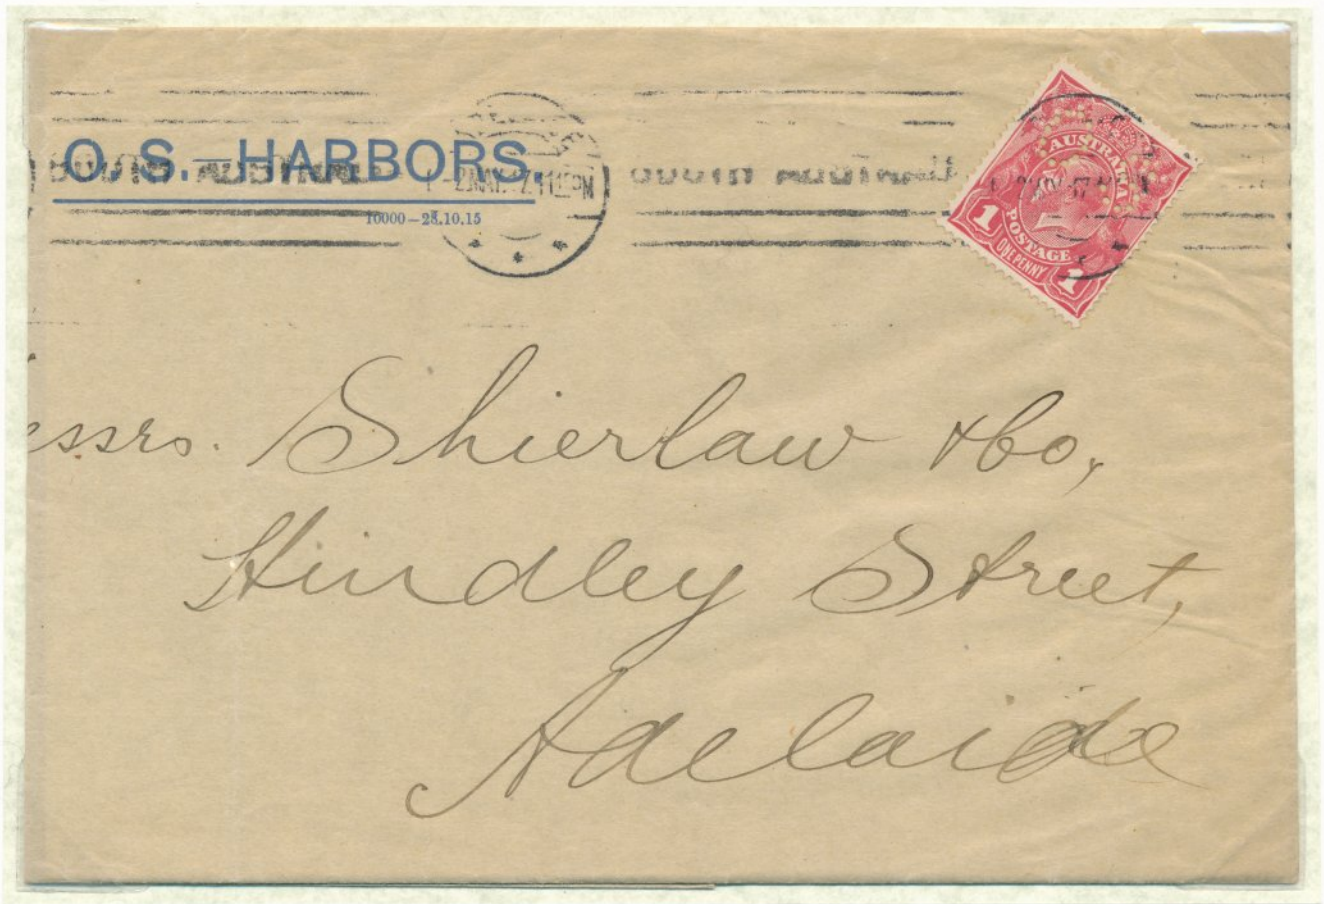 O. S.—HARBORS.
10000—28.10.15
SOUTH AUSTRALIA
SOUTH AUSTRALIA
AUSTRALIA
POSTAGE
ONE PENNY
1
1
essrs. Shierlaw & Co,
Hindley Street,
Adelaide